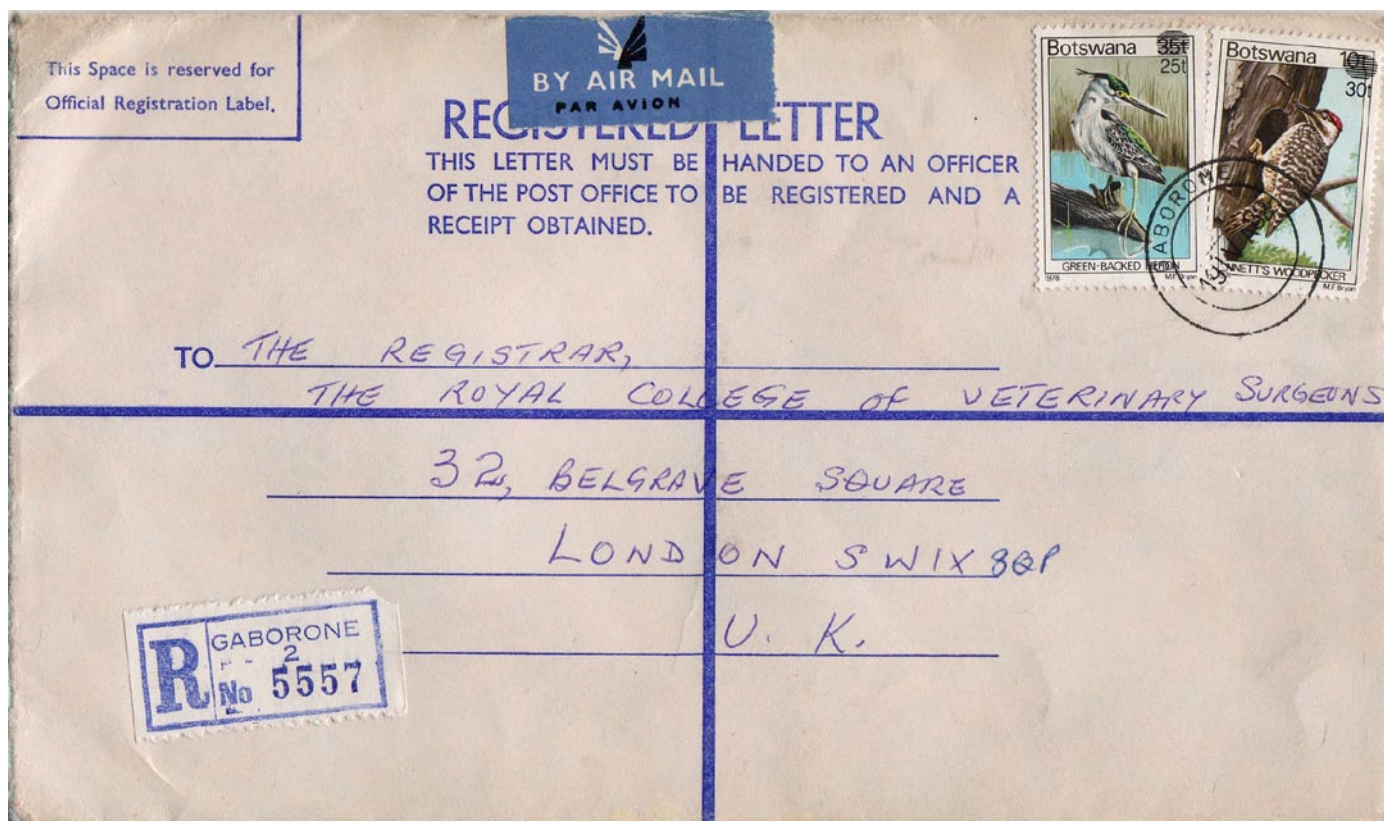 This Space is reserved for
Official Registration Label.
BY AIR MAIL
PAR AVION
REGISTERED LETTER
THIS LETTER MUST BE HANDED TO AN OFFICER
OF THE POST OFFICE TO BE REGISTERED AND A
RECEIPT OBTAINED.
Botswana 35t
25t
GREEN-BACKED HERON
1978 M.F. Bryan
Botswana 10t
30t
WOODPECKER
M.F. Bryan
TO THE REGISTRAR,
THE ROYAL COLLEGE of VETERINARY SURGEONS
32, BELGRAVE SQUARE
LONDON SW1X 8QP
U. K.
R GABORONE
2
No 5557